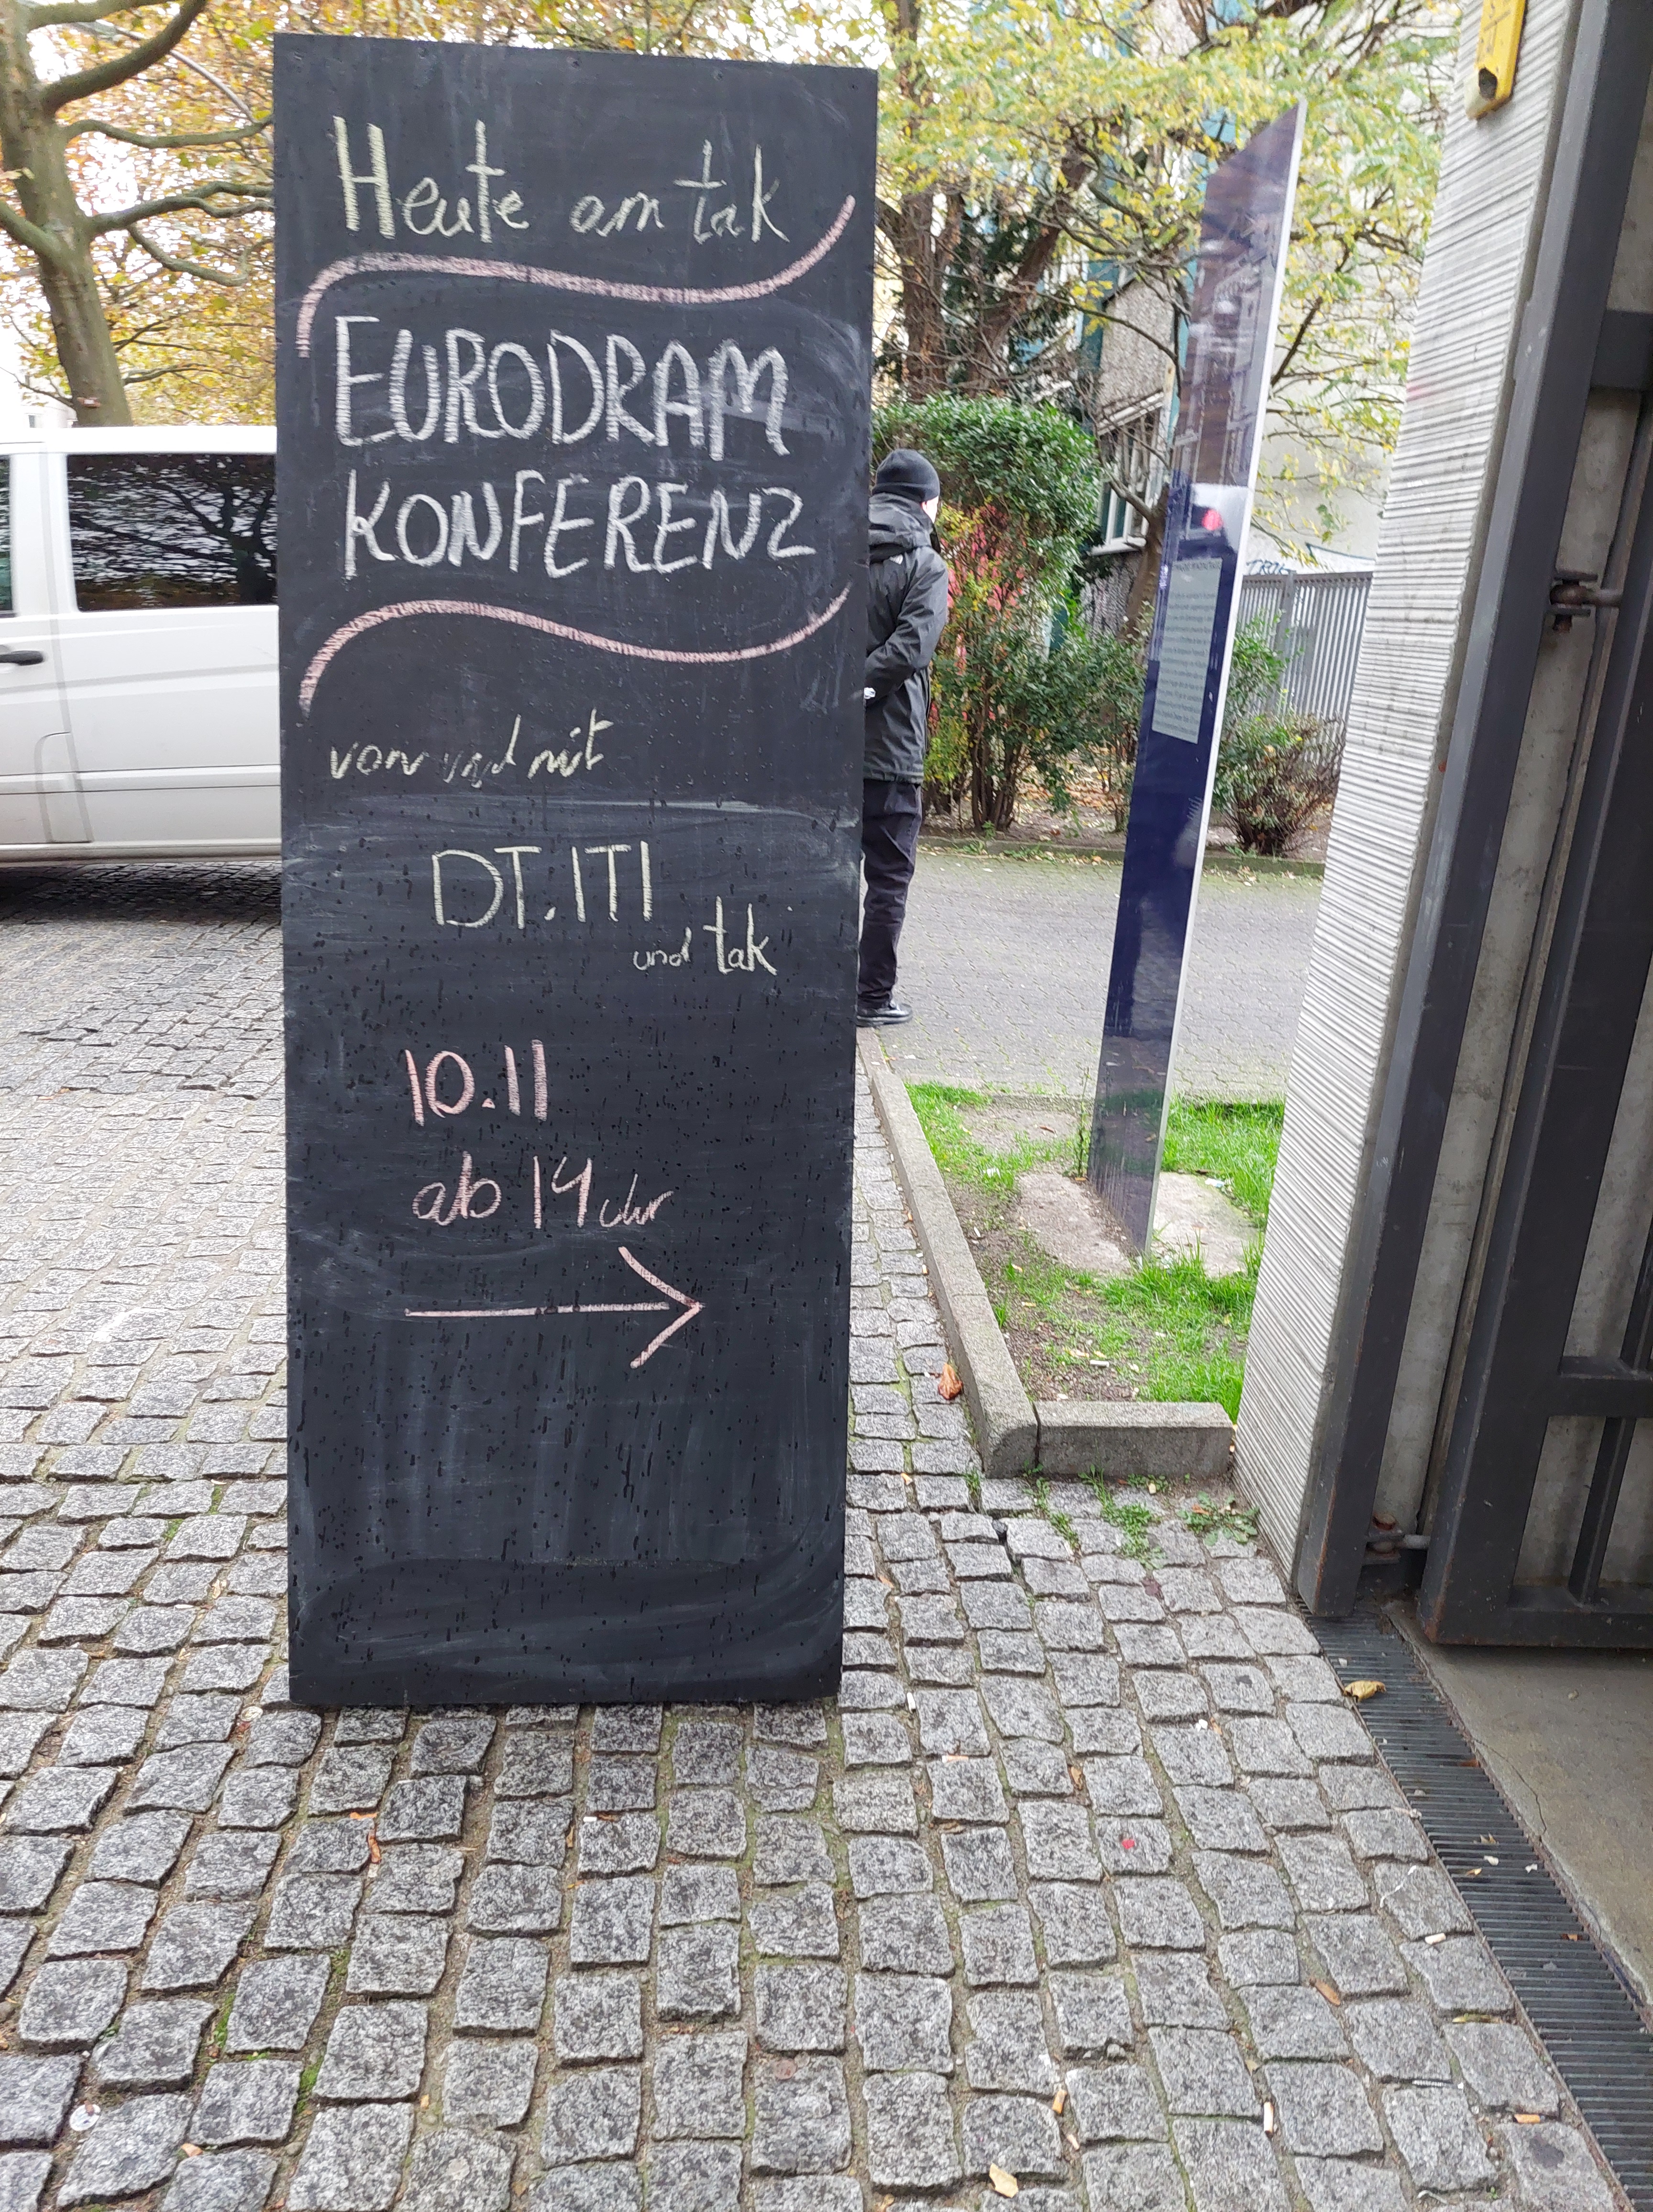 Heute am tak
EURODRAM
KONFERENZ
von und mit
DT. ITI
und tak
10.11
ab 14 Uhr